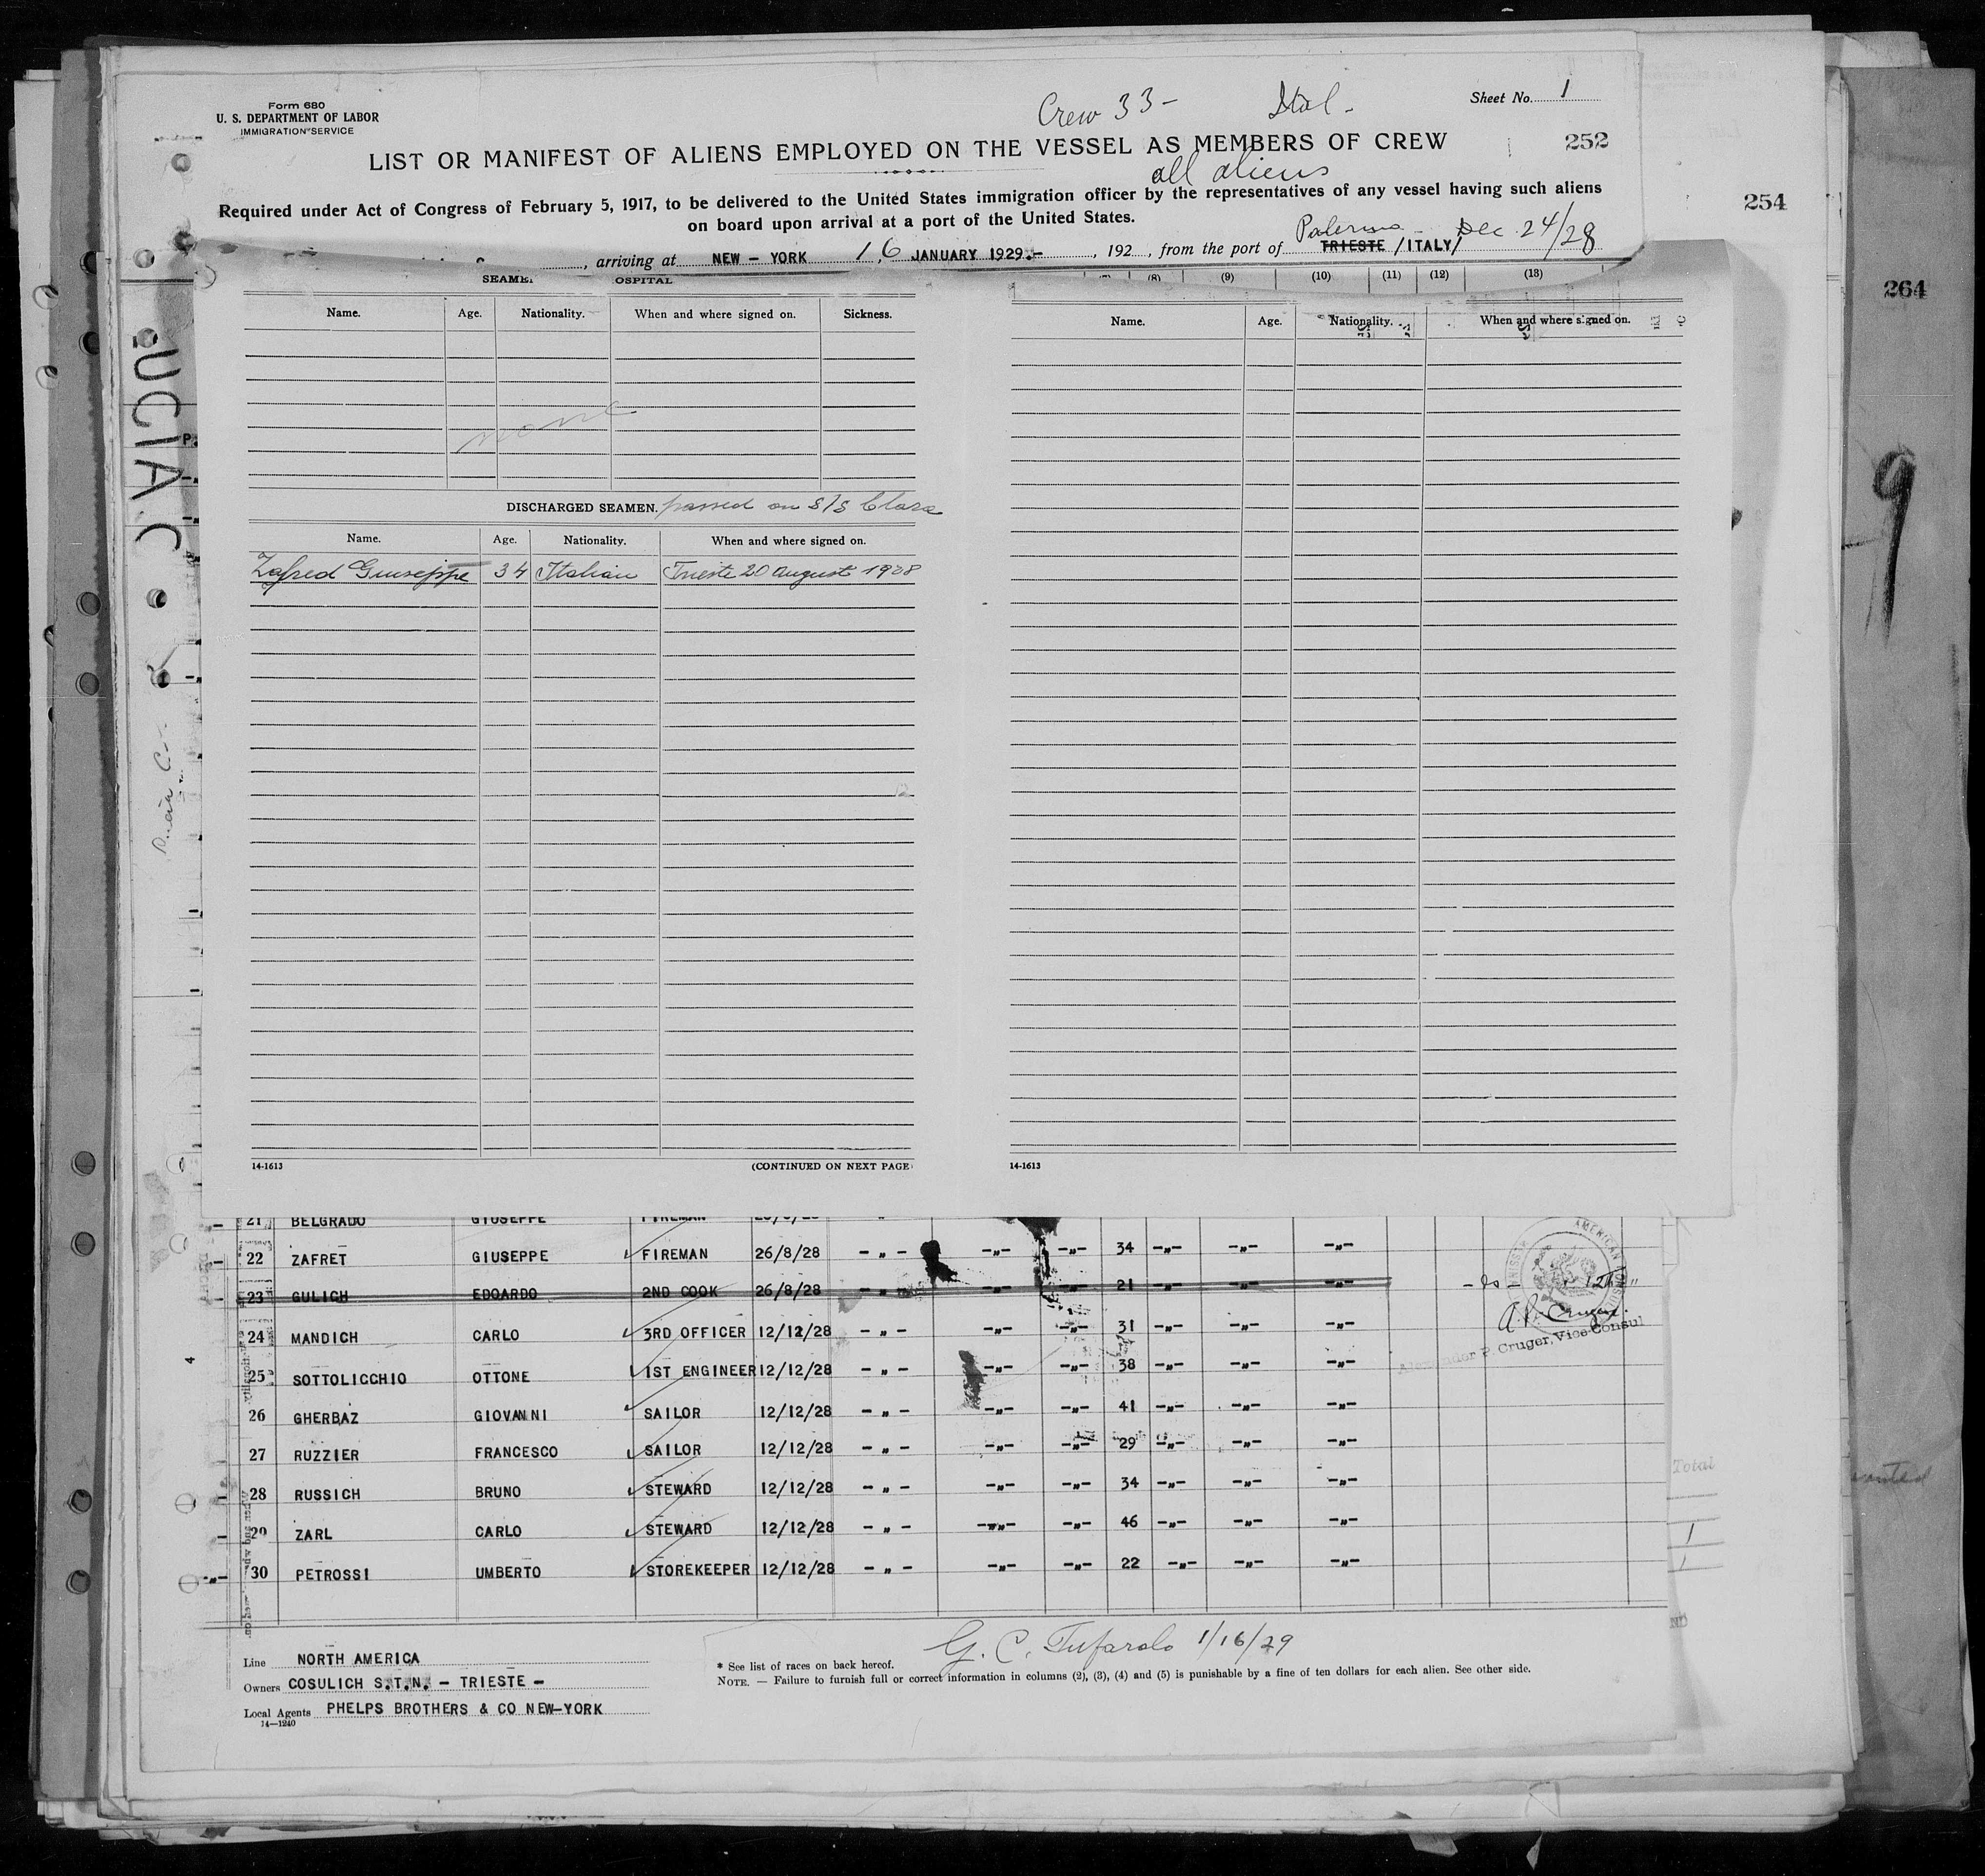 Form 680
U. S. DEPARTMENT OF LABOR
IMMIGRATION SERVICE
Crew 33- Ital.
Sheet No. 1
LIST OR MANIFEST OF ALIENS EMPLOYED ON THE VESSEL AS MEMBERS OF CREW
252
all aliens
254
264
Required under Act of Congress of February 5, 1917, to be delivered to the United States immigration officer by the representatives of any vessel having such aliens
on board upon arrival at a port of the United States.
Palermo - Dec 24/28
, arriving at NEW - YORK 16 JANUARY 1929.-, 192 , from the port of TRIESTE /ITALY/
(8) (9) (10) (11) (12) (13)
Name. Age. Nationality. When and where signed on. Sickness.
none
DISCHARGED SEAMEN. passed on S/S Clara
Name. Age. Nationality. When and where signed on.
Zafred Giuseppe 34 Italian Trieste 20 August 1928
14-1613 (CONTINUED ON NEXT PAGE)
Name. Age. Nationality. When and where signed on.
14-1613
UCIA C
9
21 BELGRADO GIUSEPPE FIREMAN
22 ZAFRET GIUSEPPE FIREMAN 26/8/28 -"- -"- -"- 34 -"- -"- -"-
23 GULICH EDOARDO 2ND COOK 26/8/28 -"- -"- 21 -"- -"- -"-
24 MANDICH CARLO 3RD OFFICER 12/12/28 -"- -"- -"- 31 -"- -"- -"-
25 SOTTOLICCHIO OTTONE 1ST ENGINEER 12/12/28 -"- -"- -"- 38 -"- -"- -"-
26 GHERBAZ GIOVANNI SAILOR 12/12/28 -"- -"- -"- 41 -"- -"- -"-
27 RUZZIER FRANCESCO SAILOR 12/12/28 -"- -"- -"- 29 -"- -"- -"-
28 RUSSICH BRUNO STEWARD 12/12/28 -"- -"- -"- 34 -"- -"- -"-
29 ZARL CARLO STEWARD 12/12/28 -"- -"- -"- 46 -"- -"- -"-
30 PETROSSI UMBERTO STOREKEEPER 12/12/28 -"- -"- -"- 22 -"- -"- -"-
AMERICAN
P. Cruger, Vice Consul
Total
1
1
4
G. C. Tufarolo 1/16/29
Line NORTH AMERICA
Owners COSULICH S.T.N. - TRIESTE -
Local Agents PHELPS BROTHERS & CO NEW-YORK
14-1240
* See list of races on back hereof.
NOTE. — Failure to furnish full or correct information in columns (2), (3), (4) and (5) is punishable by a fine of ten dollars for each alien. See other side.